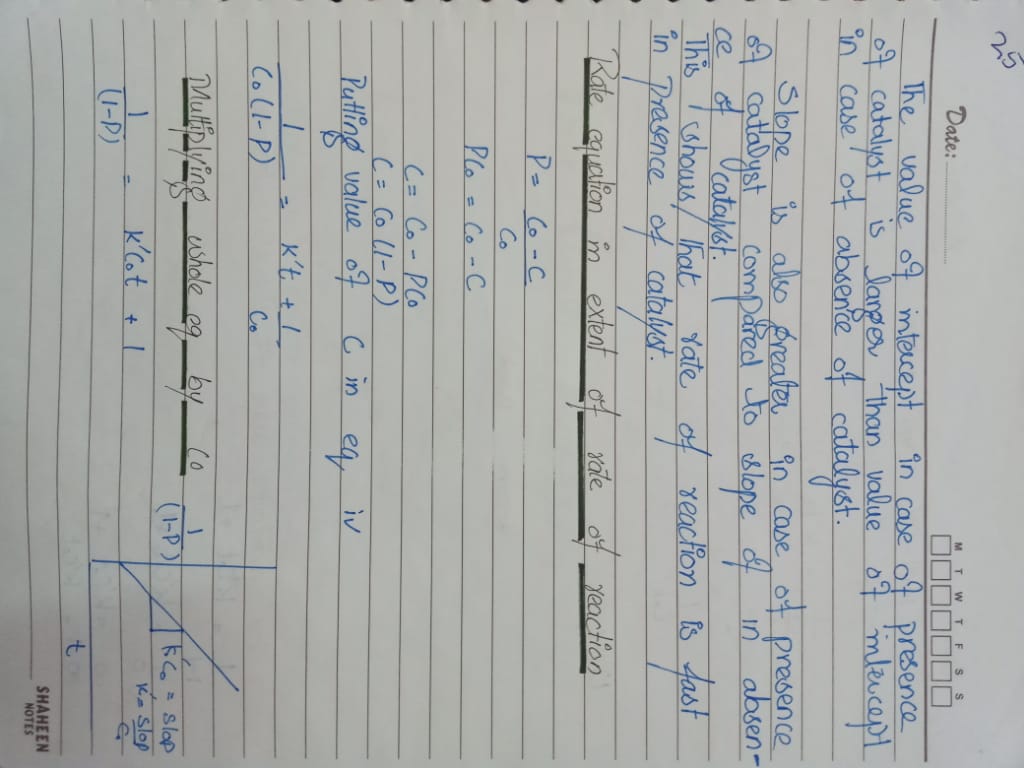 25
Date:
M T W T F S S
The value of intercept in case of presence
of catalyst is larger than value of intercept
in case of absence of catalyst.
Slope is also greater in case of presence
of catalyst compared to slope of in absen-
ce of catalyst.
This shows that rate of reaction is fast
in presence of catalyst.
Rate equation in extent of rate of reaction
P = C₀ - C / C₀
PC₀ = C₀ - C
C = C₀ - PC₀
C = C₀ (1-P)
Putting value of C in eq iv
1 / C₀(1-P) = K't + 1 / C₀
Multiplying whole eq by C₀
1 / (1-P) = K'C₀t + 1
1 / (1-P)
K'C₀ = slop
K' = slop / C₀
t
SHAHEEN
NOTES